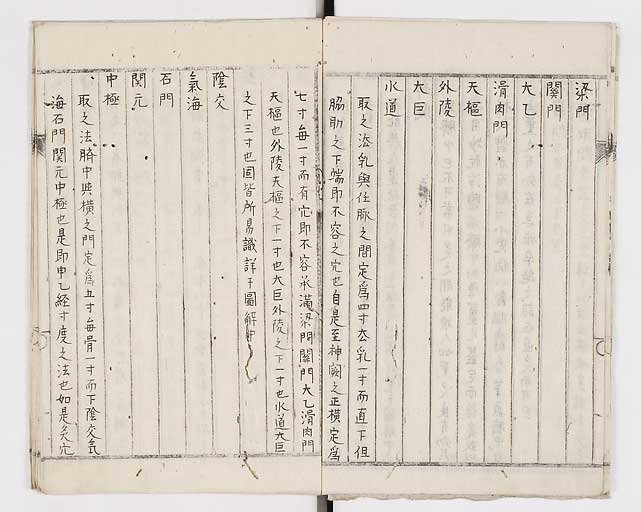 梁門
關門
大乙
滑肉門
天樞
外陵
大巨
水道
取之法乳與任脈之間定爲四寸去乳一寸而直下但
脇肋之下端即不容之穴也自是至神闕之正横定爲
七寸每一寸而有穴即不容承滿梁門關門大乙滑肉門
天樞也外陵天樞之下一寸也大巨外陵之下一寸也水道大巨
之下三寸也固皆所易識詳于圖解中
陰交
氣海
石門
関元
中極
取之法臍中與横之門定爲五寸每骨一寸而下陰交氣
海石門関元中極也是即申乙経寸度之法也如是灸穴